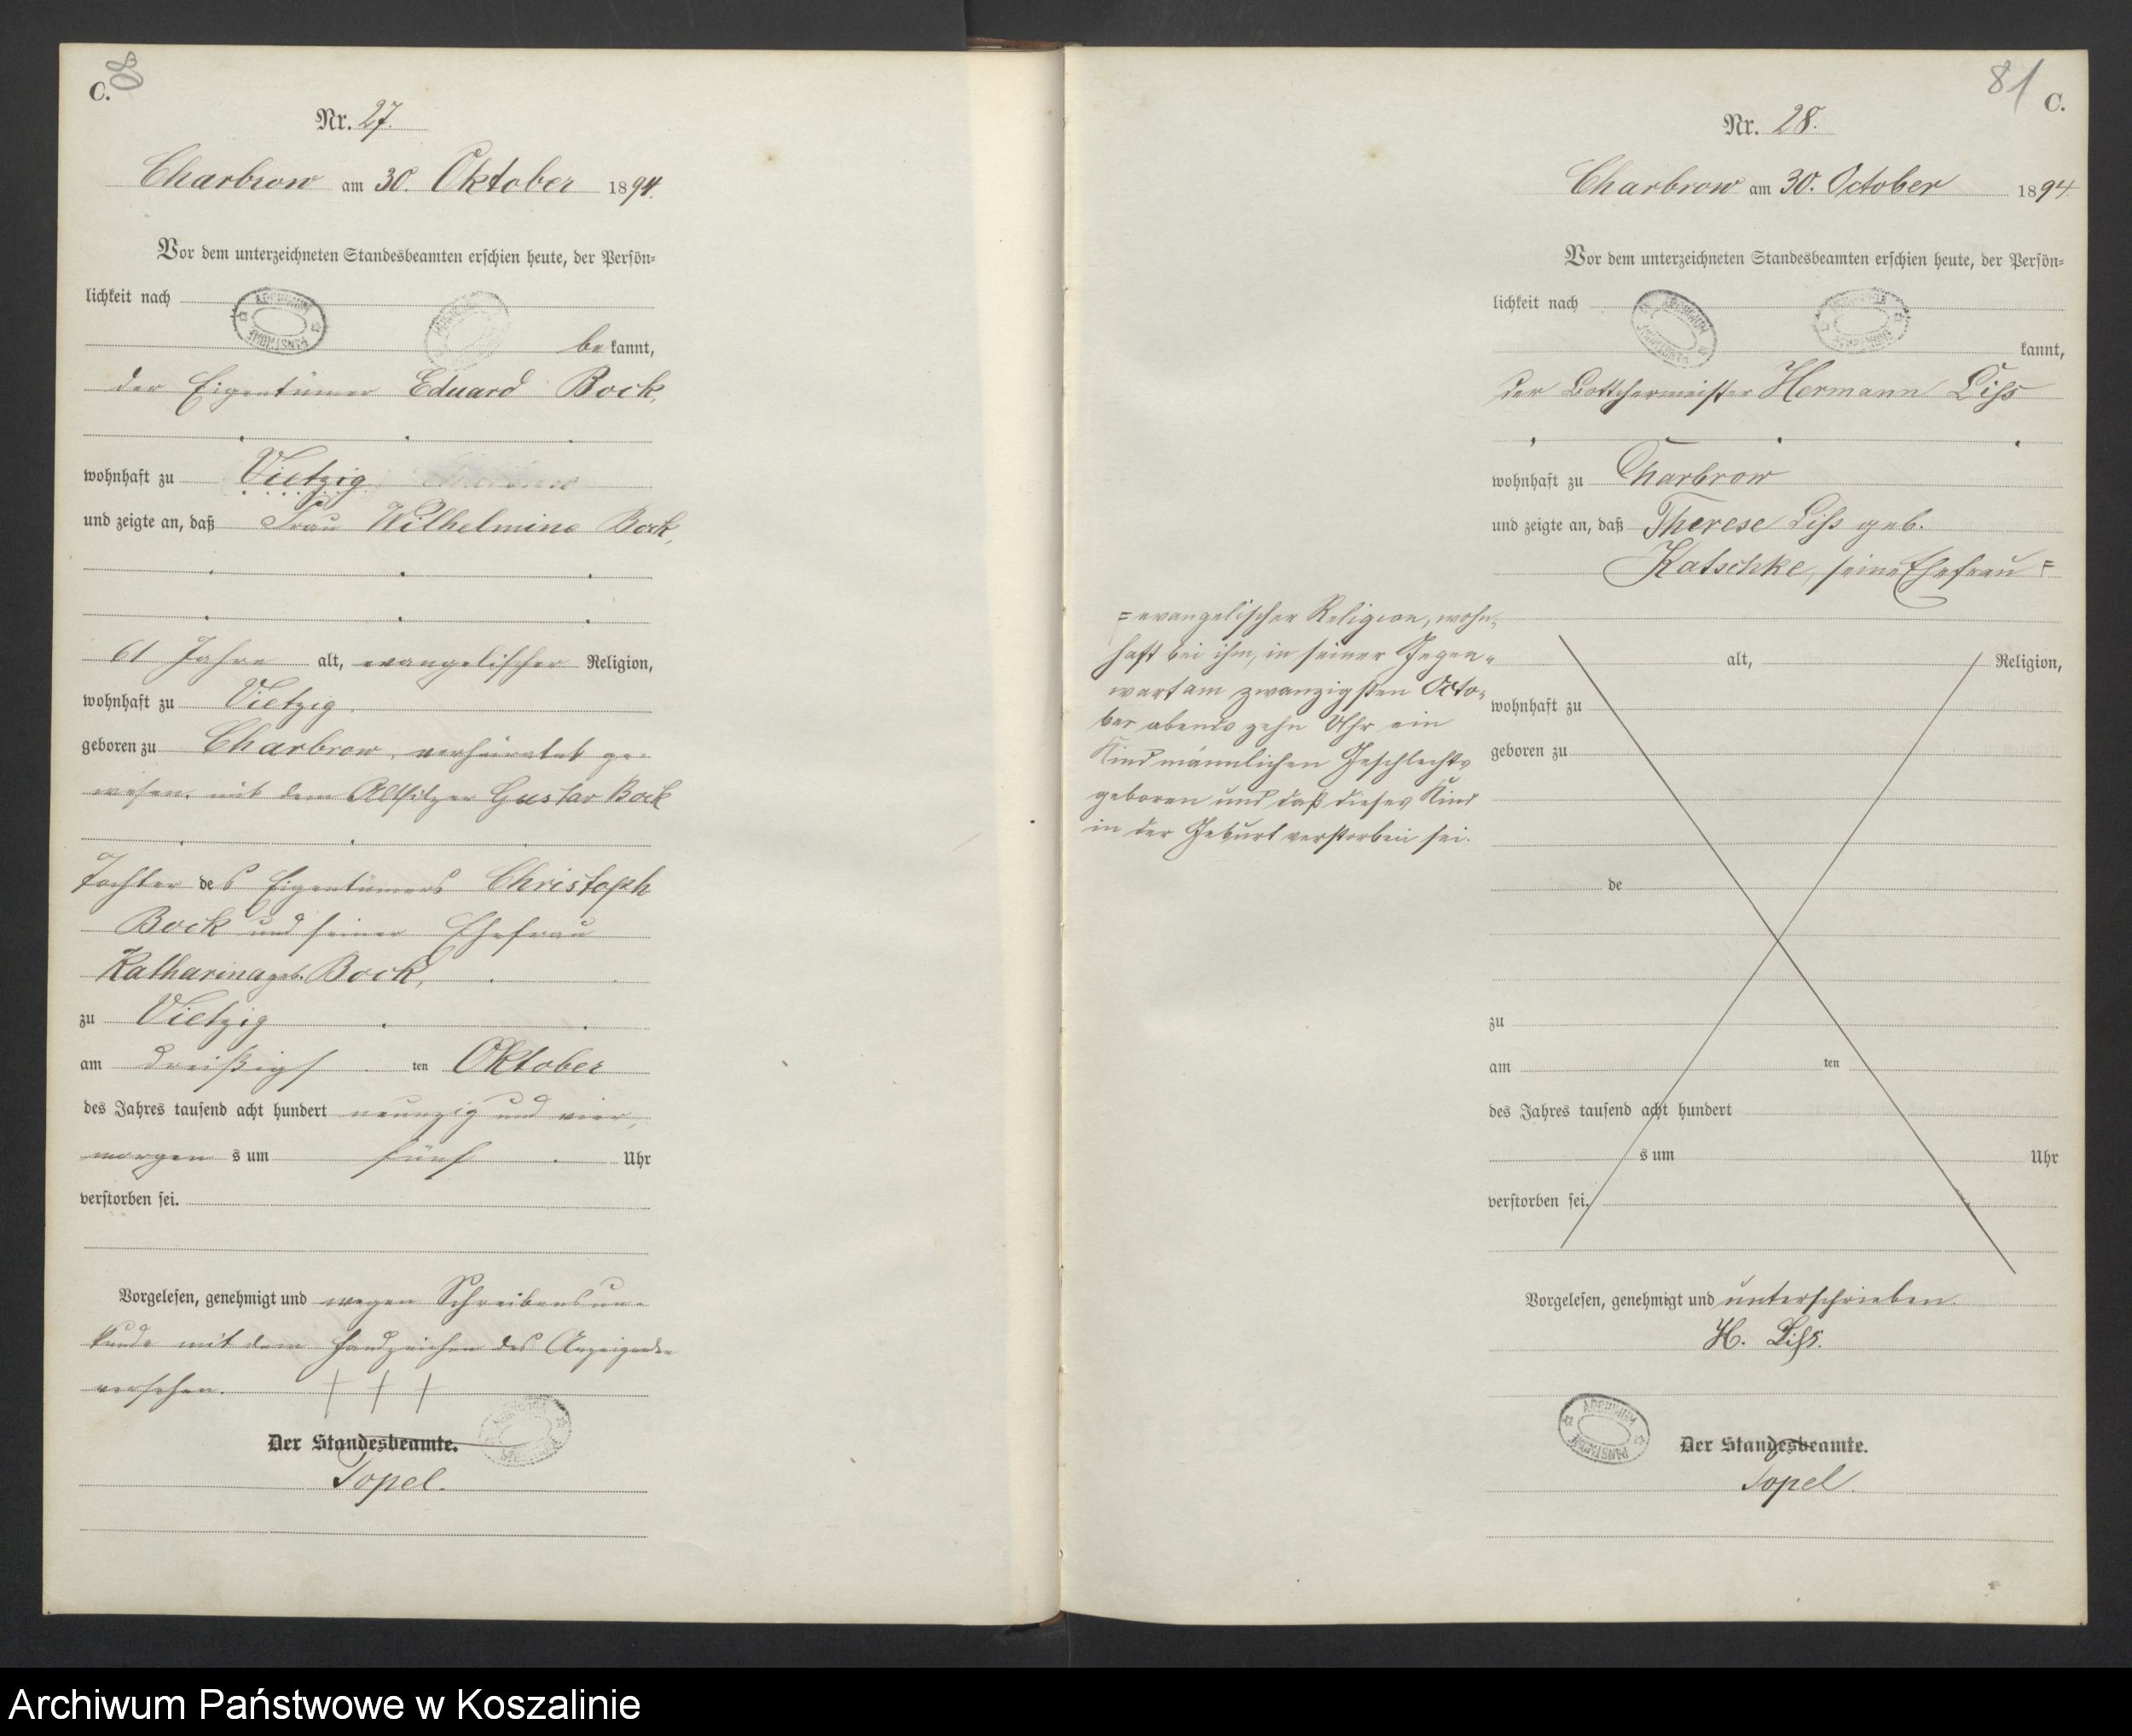 C.
Nr. 27.
Charbrow am 30. Oktober 1894.
Vor dem unterzeichneten Standesbeamten erschien heute, der Persön=
lichkeit nach
bekannt,
der Eigentümer Eduard Bock,
wohnhaft zu Vietzig
und zeigte an, daß Frau Wilhelmine Bock,
61 Jahre alt, evangelischer Religion,
wohnhaft zu Vietzig.
geboren zu Charbrow, verheiratet ge-
wesen mit dem Altsitzer Gustav Bock
Tochter des Eigentümers Christoph
Bock und seiner Ehefrau
Katharina geb. Bock,
zu Vietzig
am dreißigsten Oktober
des Jahres tausend acht hundert neunzig und vier,
morgens um fünf Uhr
verstorben sei.
Vorgelesen, genehmigt und wegen Schreibensun-
kunde mit dem Handzeichen des Anzeigenden
versehen. + + +
Der Standesbeamte.
Topel.
81 C.
Nr. 28.
Charbrow am 30. October 1894.
Vor dem unterzeichneten Standesbeamten erschien heute, der Persön=
lichkeit nach
kannt,
der Böttchermeister Hermann Liss
wohnhaft zu Charbrow
und zeigte an, daß Therese Liss geb.
Katschke, seine Ehefrau =
= evangelischer Religion, wohn-
haft bei ihm, in seiner Gegen-
wart am zwanzigsten Octo-
ber abends zehn Uhr ein
Kind männlichen Geschlechts
geboren und daß dieses Kind
in der Geburt verstorben sei.
alt, Religion,
wohnhaft zu
geboren zu
de
zu
am ten
des Jahres tausend acht hundert
s um Uhr
verstorben sei.
Vorgelesen, genehmigt und unterschrieben.
H. Liss.
ARCHIWUM PAŃSTWOWE
Der Standesbeamte.
Topel.
Archiwum Państwowe w Koszalinie